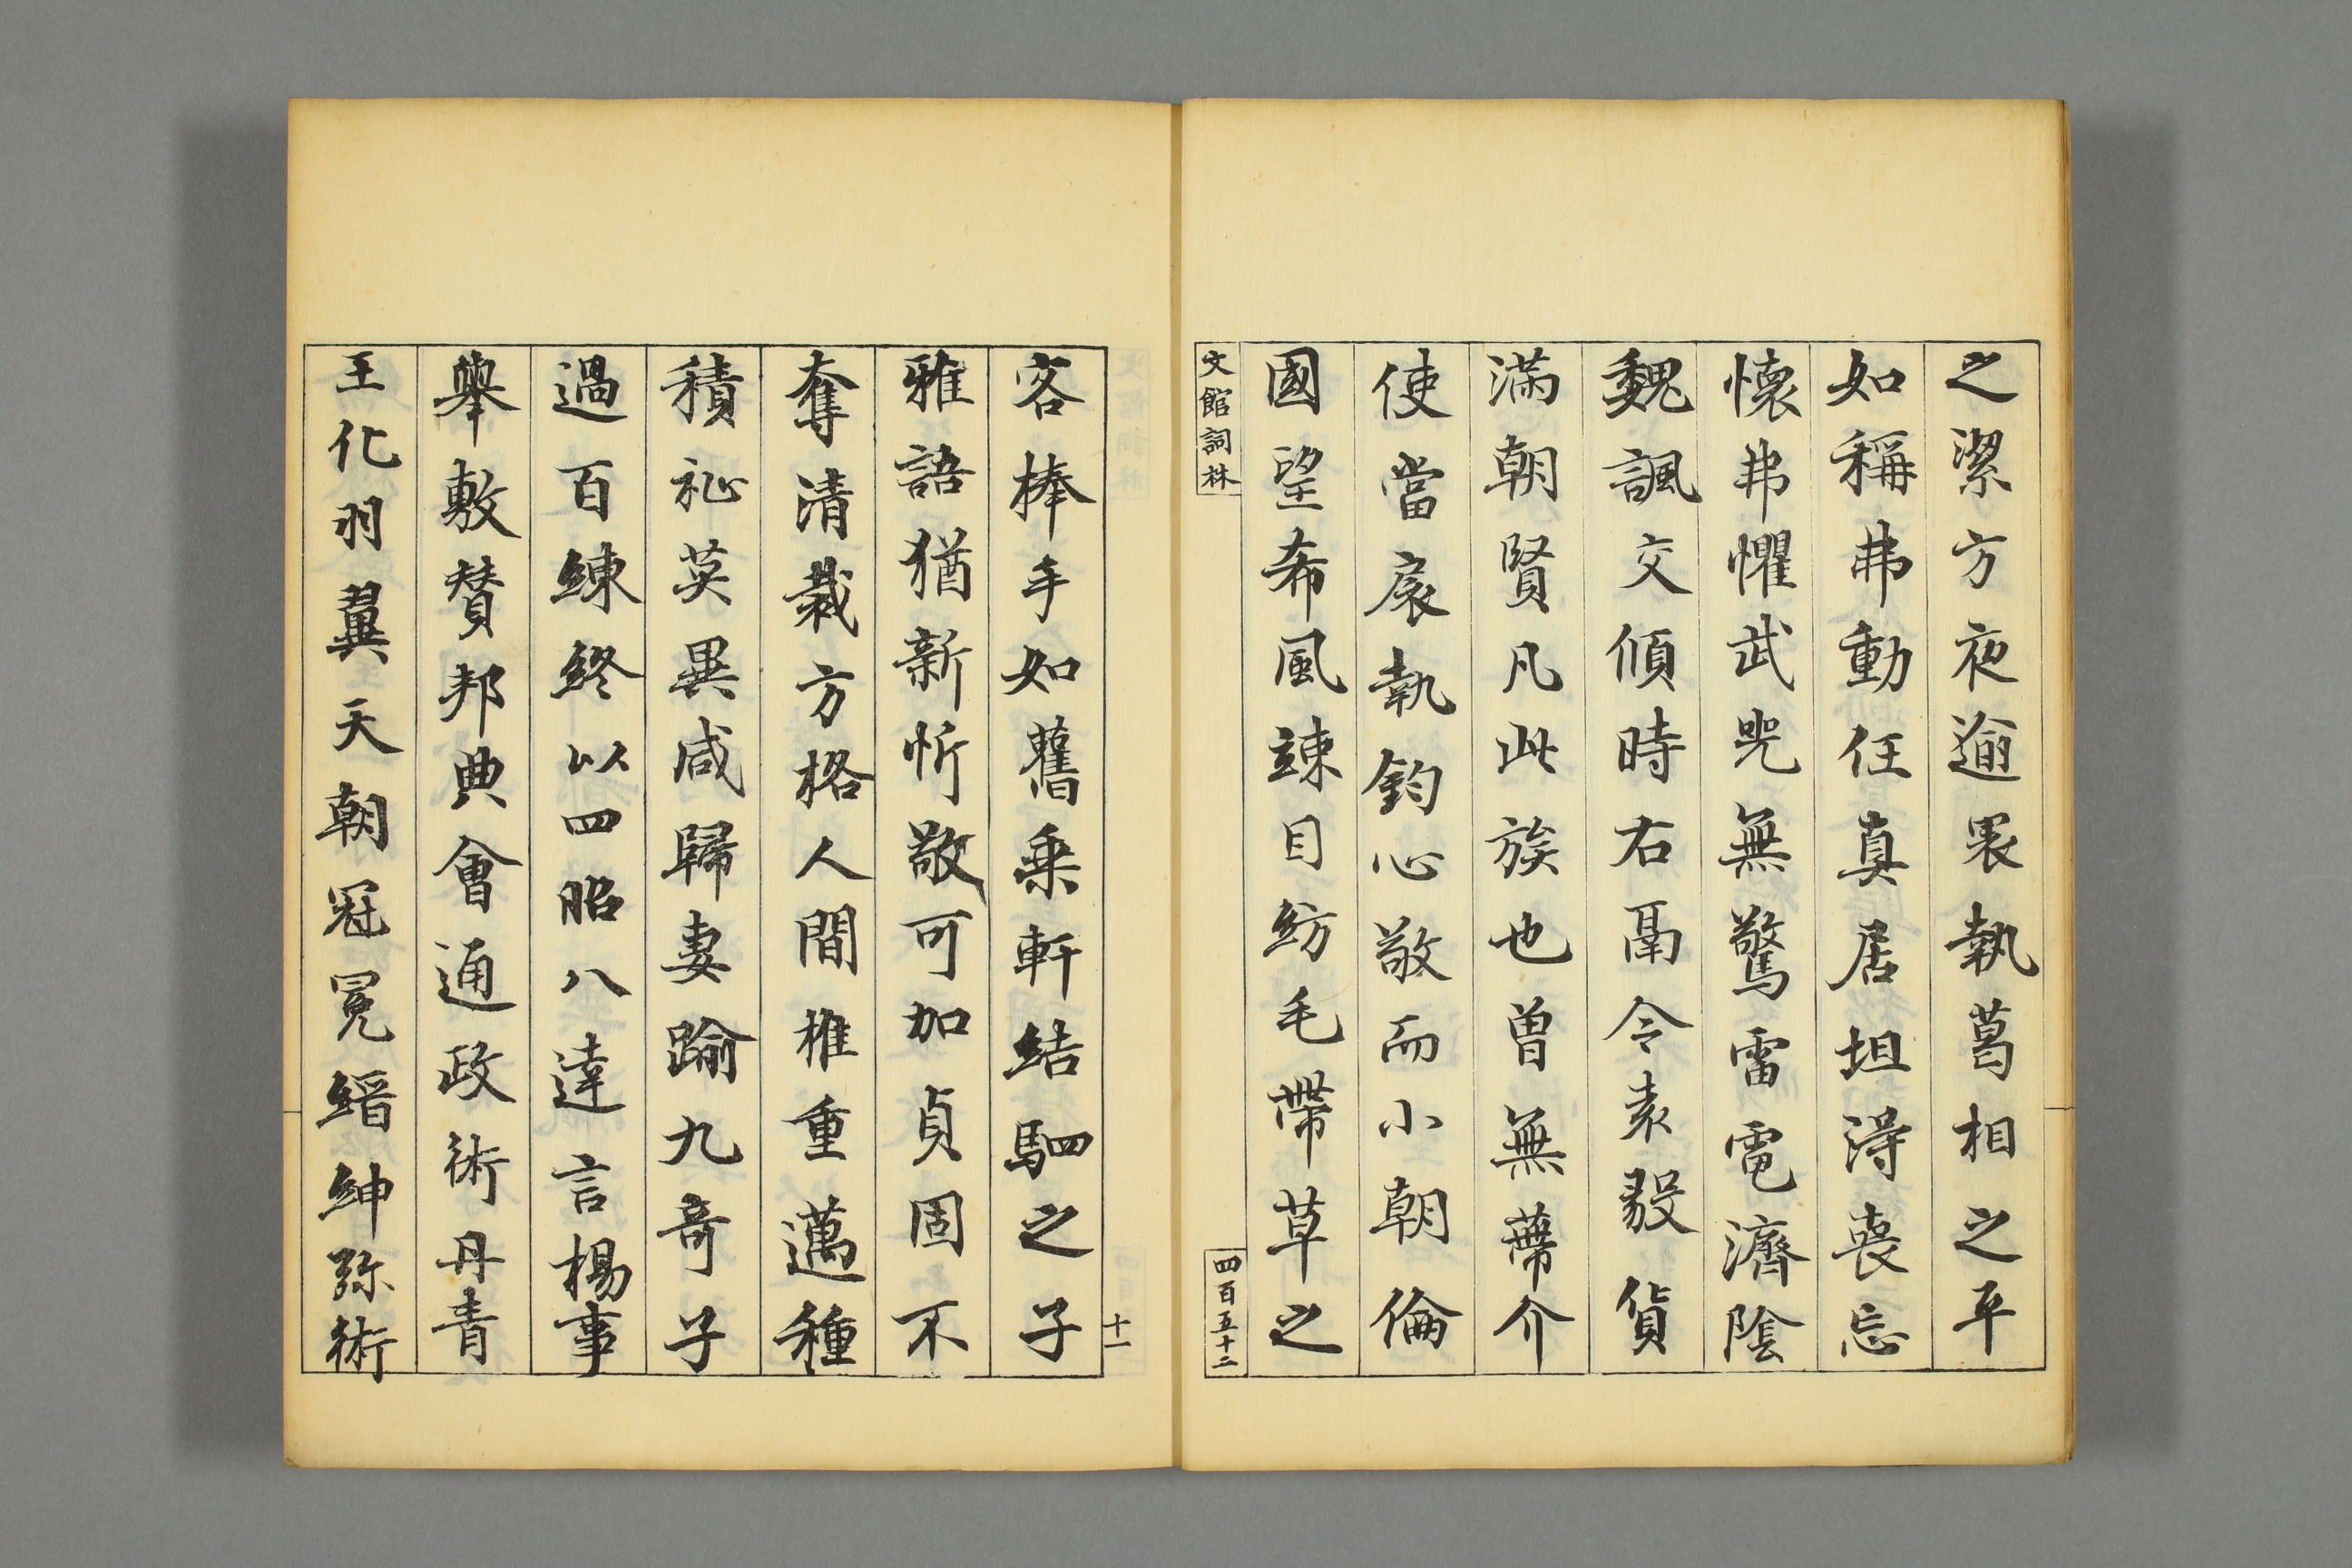 之潔方夜逾褁執葛相之平
如稱弗動任真居坦淂喪忘
懷弗懼武咒無驚雷電濟陰
魏諷交傾時右鬲令袁毅貨
滿朝賢凡此族也曾無蔕介
使當扆執鈞心敬而小朝倫
國望希風竦目紡毛帶草之
文館詞林
四百五十二
十一
客棒手如舊乗軒結駟之子
雅語猶新忻敬可加貞固不
奪清裁方格人間推重邁種
積祉英異咸歸妻踰九奇子
過百練終以四昭八達言楊事
舉敷賛邦典會通政術丹青
王化羽翼天朝冠冕縉紳弥術